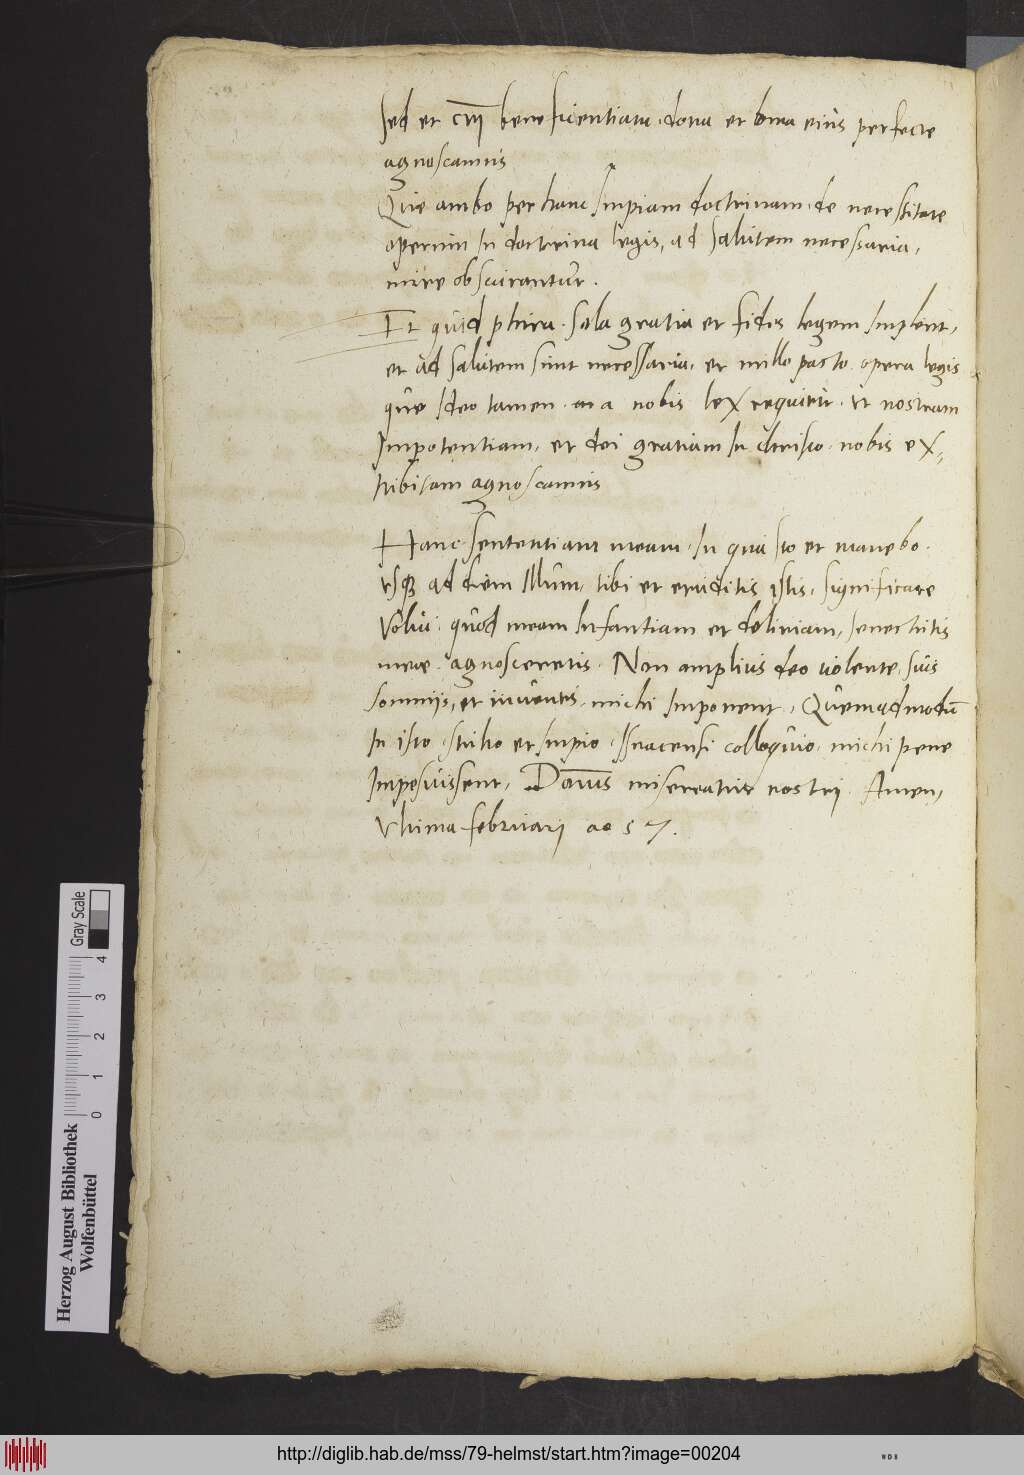 Sed et cru beneficentiam, dona et bona eius perfecte
agnoscamus
Que ambo per hanc Impiam doctrinam, de necessitate
operum In doctrina legis, ad salutem necessaria,
mire obscurantur.
Et quid plura. sola gratia et fides legem Implent,
et ad salutem sunt necessaria, et nullo pacto opera legis
que Ideo tamen a nobis lex requirit, ut nostram
Impotentiam, et dei gratiam In christo nobis ex,
hibitam agnoscamus
Hanc sententiam meam, In qua sto et manebo
usque ad diem Illum, tibi et eruditis istis, significare
Volui, quod meam Infantiam et deliriam, senectutis
meae agnosceretis. Non amplius deo volente suis
somniis, et inventis, michi Imponent, Quemadmodum
In isto stulto et Impio, Isnacensi colloquio, michi pene
Imposuissent, Dominus misereatur nostri. Amen,
Ultima februarij ao 57.
Gray Scale
0 1 2 3 4
Herzog August Bibliothek
Wolfenbüttel
http://diglib.hab.de/mss/79-helmst/start.htm?image=00204